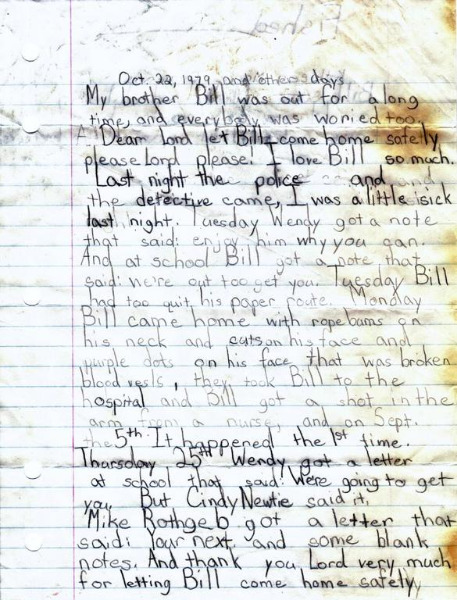 Oct. 22, 1979, and other days
My brother Bill was out for a long
time, and everybody was woried too.
Dear lord let Bill come home safeily
please Lord please! I love Bill so much.
Last night the police and
the detective came, I was a little sick
last night. Tuesday Wendy got a note
that said: enjoy him why you can.
And at school Bill got a note that
said: we're out too get you. Tuesday Bill
had too quit his paper route. Monday
Bill came home with rope bams on
his neck and cuts on his face and
purple dots on his face that was broken
blood vesils, they took Bill to the
hospital and Bill got a shot in the
arm from a nurse, and on Sept.
the 5th It happened the 1st time.
Thursday 25th Wendy got a letter
at school that said: We're going to get
you. But Cindy Newtie said it.
Mike Rothgeb got a letter that
said: your next, and some blank
notes. And thank you Lord very much
for letting Bill come home safely